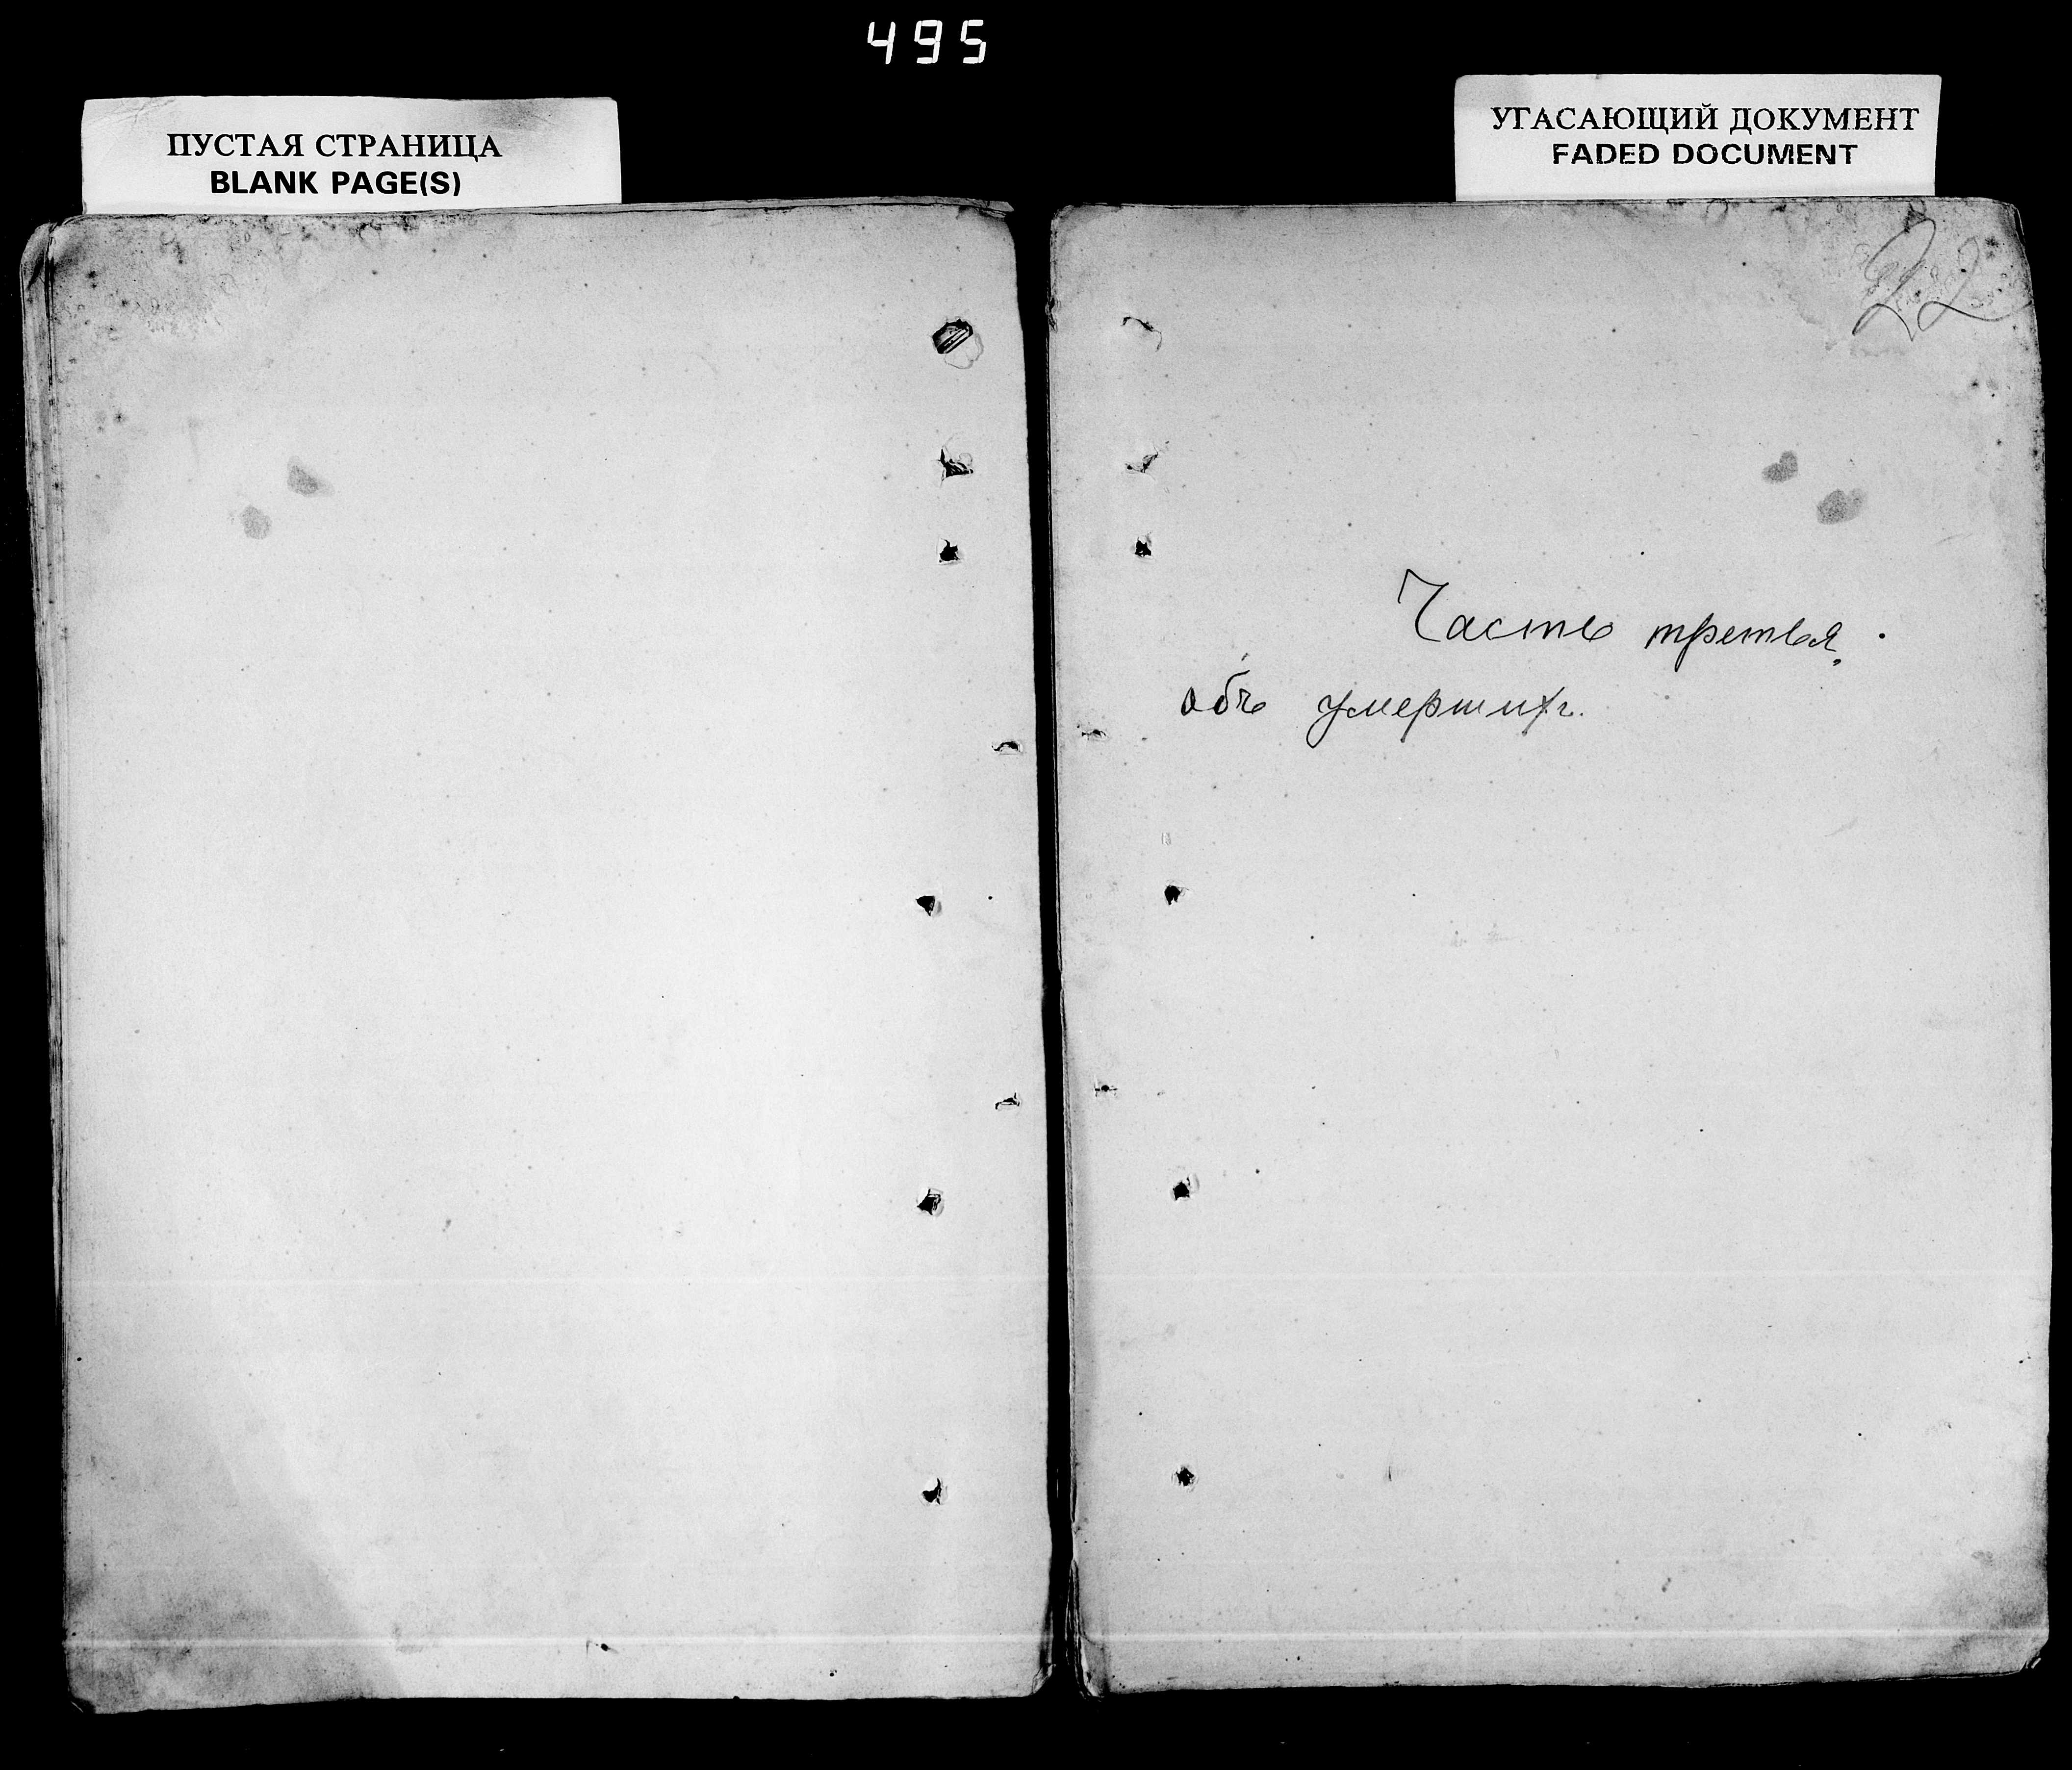 495
ПУСТАЯ СТРАНИЦА
BLANK PAGE(S)
УГАСАЮЩИЙ ДОКУМЕНТ
FADED DOCUMENT
22
Часть третья.
объ умершихъ.